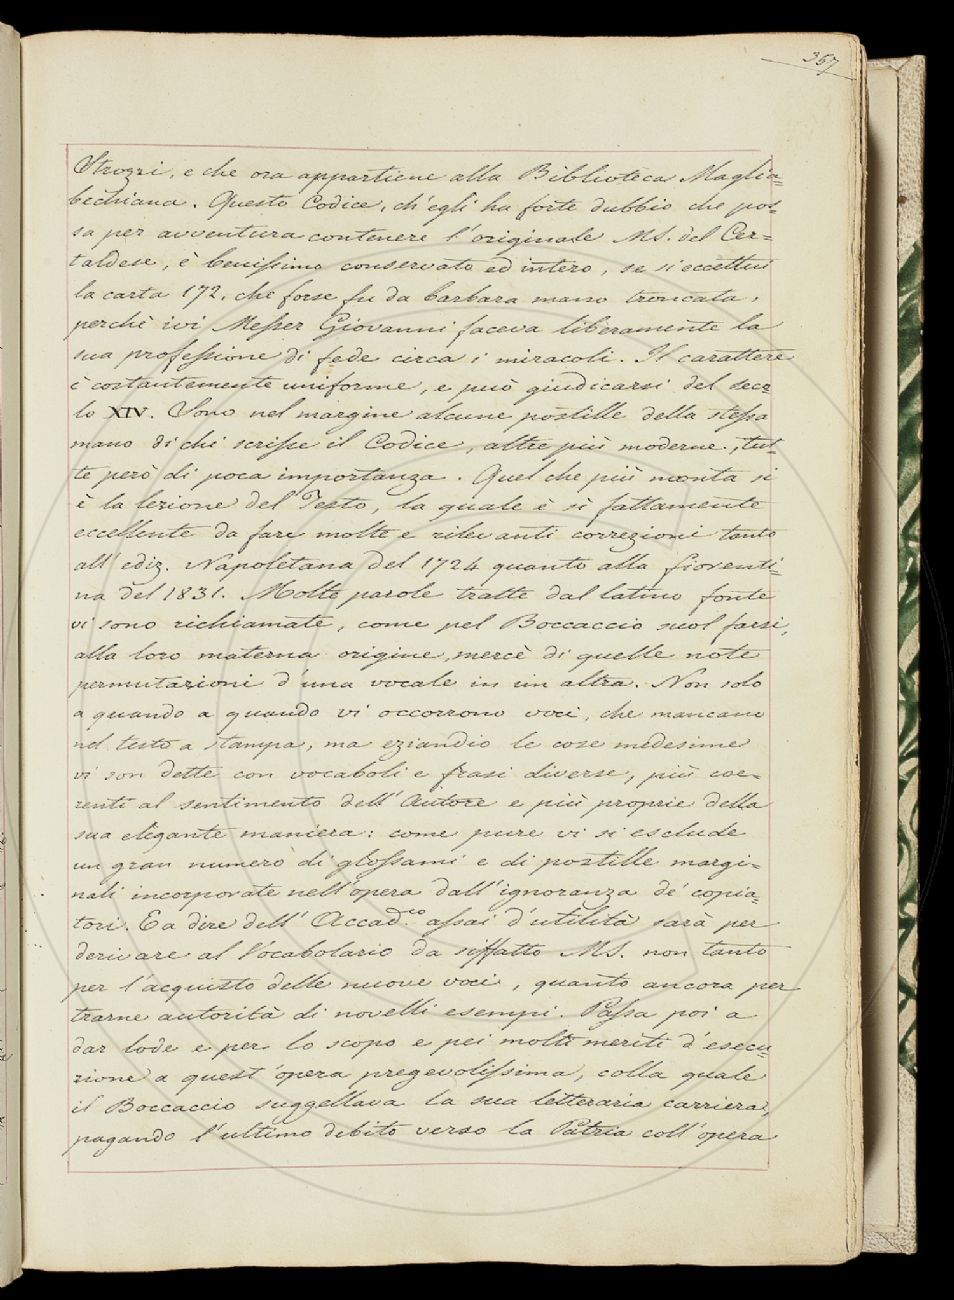 367
Strozzi, e che ora appartiene alla Biblioteca Maglia=
bechiana. Questo Codice, ch'egli ha forte dubbio che pos=
sa per avventura contenere l'originale MS. del Cer=
taldese, è benissimo conservato ed intero, se si eccettui
la carta 172, che forse fu da barbara mano troncata,
perchè ivi Messer Giovanni faceva liberamente la
sua professione di fede circa i miracoli. Il carattere
è costantemente uniforme, e può giudicarsi del seco=
lo XIV. Sono nel margine alcune postille della stessa
mano di chi scrisse il Codice, altre più moderne, tut=
te però di poca importanza. Quel che più monta si
è la lezione del Testo, la quale è sì fattamente
eccellente da fare molte e rilevanti correzioni tanto
all'ediz. Napoletana del 1724 quanto alla fiorenti=
na del 1831. Molte parole tratte dal latino fonte
vi sono richiamate, come pel Boccaccio suol farsi,
alla loro materna origine, mercè di quelle note
permutazioni d'una vocale in un altra. Non solo
a quando a quando vi occorrono voci, che mancano
nel testo a stampa, ma eziandio le cose medesime
vi son dette con vocaboli e frasi diverse, più coe=
renti al sentimento dell'Autore e più proprie della
sua elegante maniera: come pure vi si esclude
un gran numero di glossami e di postille margi=
nali incorporate nell'opera dall'ignoranza de' copia=
tori. E a dire dell'Accad.co assai d'utilità sarà per
derivare al Vocabolario da siffatto MS. non tanto
per l'acquisto delle nuove voci, quanto ancora per
trarne autorità di novelli esempi. Passa poi a
dar lode e per lo scopo e pei molti meriti d'esecu=
zione a quest'opera pregevolissima, colla quale
il Boccaccio suggellava la sua letteraria carriera,
pagando l'ultimo debito verso la Patria coll'opera